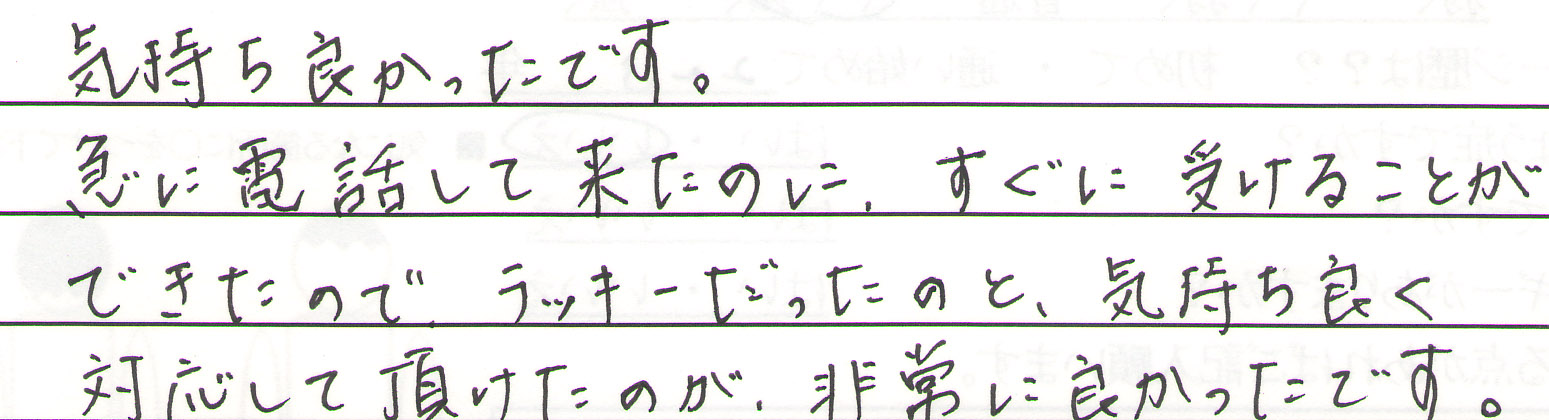 気持ち良かったです。
急に電話して来たのに、すぐに受けることが
できたので、ラッキーだったのと、気持ち良く
対応して頂けたのが、非常に良かったです。